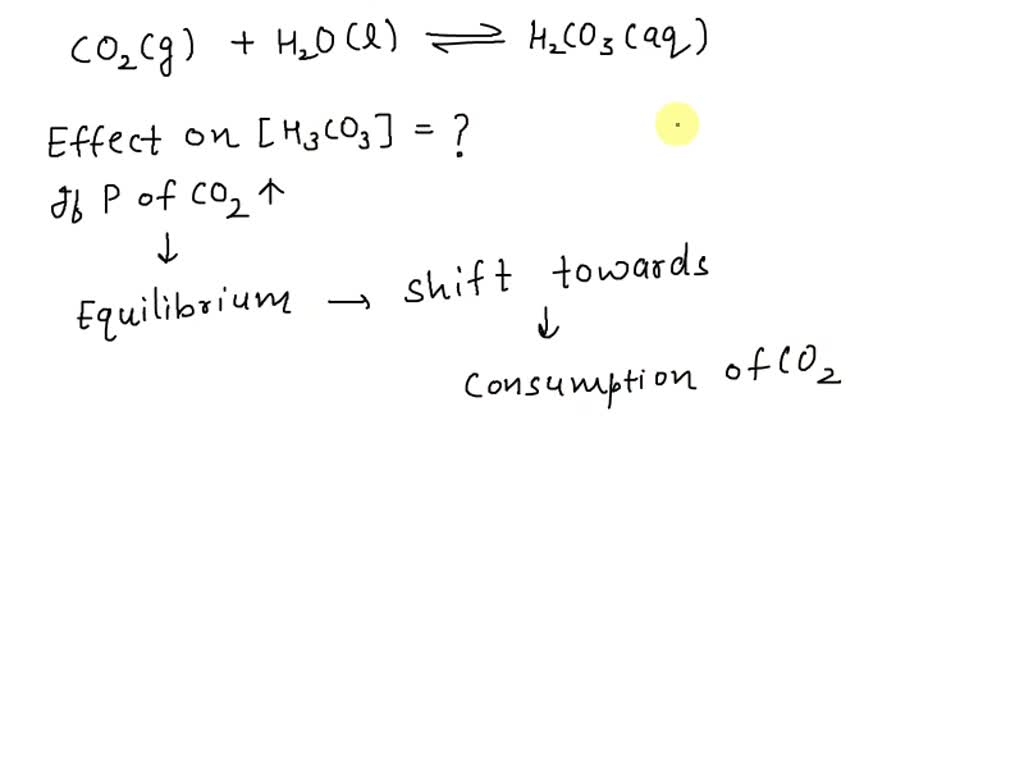 CO₂(g) + H₂O(l) ⇌ H₂CO₃(aq)
Effect on [H₃CO₃] = ?
If P of CO₂ ↑
↓
Equilibrium → shift towards
↓
Consumption of CO₂